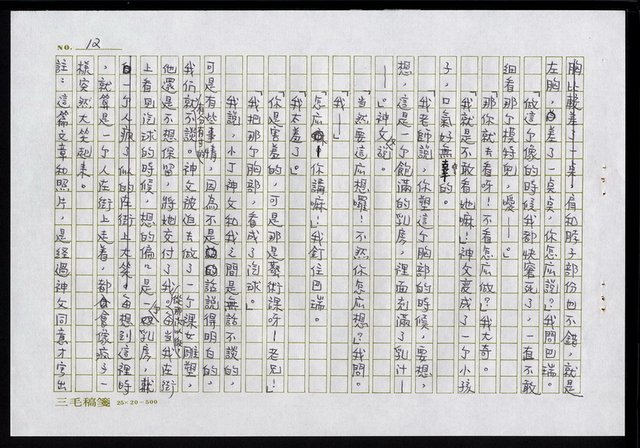 NO. 12
胸比較差了一點。肩和脖子部份也不錯,就是
左胸,差了一點點,你怎麼說?」我問巴瑞。
「做這個像的時候我都快害死了,一直不敢
細看那個模特兒,噯——。」
「那你就去看呀!不看怎麼做?」我大奇。
「我就是不敢看她嘛!」神父變成了一個小孩
子,口氣好無辜的。
「我老師說,你塑這個胸部的時候,要想,
想,這是一個飽滿的乳房,裡面充滿了乳汁—
—」神父說。
「當然要這麼想囉!不然你怎麼想?」我問。
「我——」
「怎麼嘛!你講嘛!」我釘住巴瑞。
「我太羞了。」
「你是害羞的,可是那是藝術課呀!老兄!」
「我把那個胸部,看成了泡球。」
我說,小丁神父和我之間是無話不談的,
可是有些事情,因為不是的話說得明白的,
我們就不說。神父被迫去做了一個裸女雕塑,
他還是不想保留,將她交付了我。每當我在街
上看到泡球的時候,想的偏是一個乳房,就
一個人瘋了似的在街上大笑。每想到這裡時
,就算是一個人在街上走着,都會像瘋了一
樣突然大笑起來。
註:這篇文章和照片,是經過神父同意才寫出
三毛稿箋 25×20=500